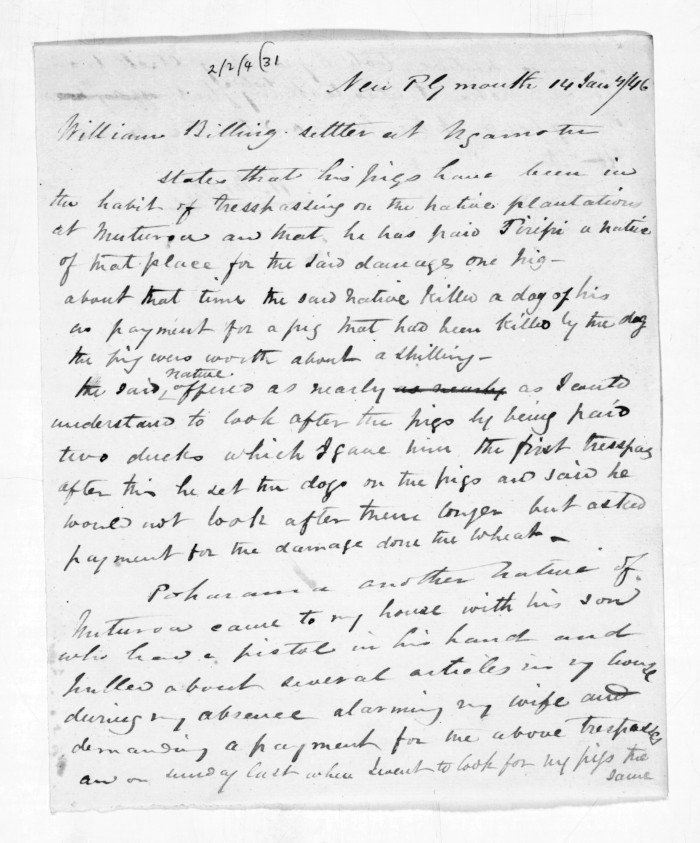 2/2/4 (31
New Plymouth 14 Jany/46
William Billing settler at Ngamotu
states that his pigs have been in
the habit of tresspassing on the native plantations
at Muturoa and that he has paid Tiripi a native
of that place for the said damages one pig—
about that time the said native killed a dog of his
as payment for a pig that had been killed by the dog
the pig was worth about a shilling—
the said native offered as nearly as nearly as I could
understand to look after the pigs by being paid
two ducks which I gave him the first tresspass
after this he set the dogs on the pigs and said he
would not look after them longer but asked
payment for the damage done the wheat—
Poharama another Native of
Muturoa came to my house with his son
who had a pistol in his hand and
pulled about several articles in my house
during my absence alarming my wife and
demanding a payment for the above trespasses
and on sunday last when I went to look for my pigs the
same